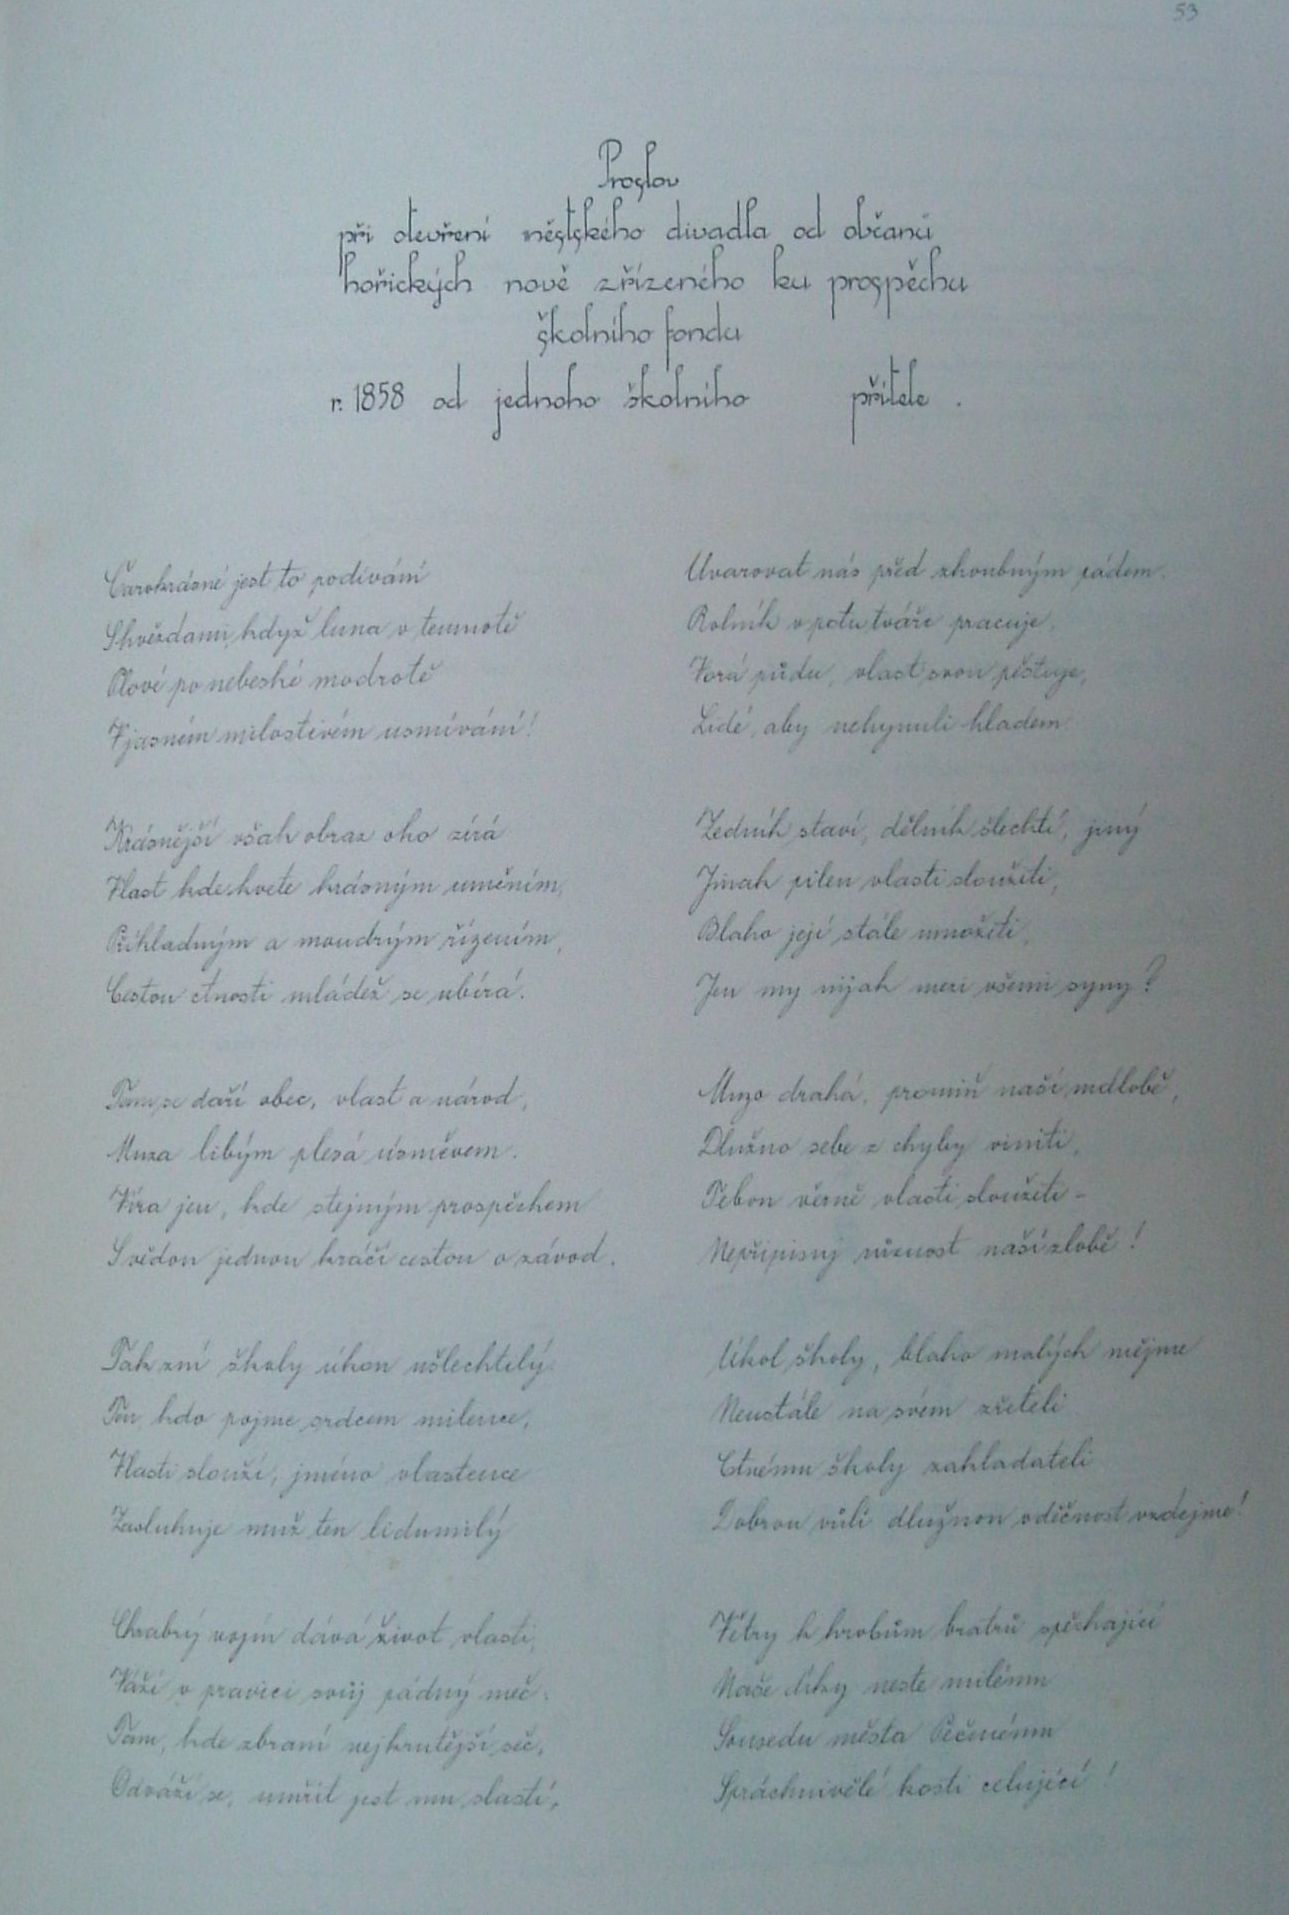 53
Proslov
při otevření městského divadla od občanů
hořických nově zřízeného ku prospěchu
školního fondu
r. 1858 od jednoho školního přítele .
Čarokrásné jest to podívání
S hvězdami, když luna v temnotě
Plove po nebeské modrotě
V jasném milostivém usmívání!
Krásnější však obraz oko zírá
Vlast kde kvete krásným uměním,
Příkladným a moudrým řízením,
Cestou ctnosti mládež se ubírá.
Tam se daří obec, vlast a národ,
Muza libým plesá úsměvem.
Víra jen, kde stejným prospěchem
S vědou jednou kráčí cestou o závod.
Tak zní školy úkon ušlechtilý.
Ten, kdo pojme srdcem milence,
Vlasti slouží, jméno vlastence
Zasluhuje muž ten lidumilý
Chrabrý vojín dává život vlasti,
Váží v pravici svůj pádný meč.
Tam, kde zbraní nejkrutější seč,
Odváží se, umřít jest mu slastí,
Uvarovat nás před zhoubným pádem.
Rolník v potu tváře pracuje,
Vorá půdu, vlast svou pěstuje,
Lidé, aby nehynuli hladem.
Zedník staví, dělník šlechtí, jiný
Jinak pilen vlasti sloužiti,
Blaho její stále množiti,
Jen my nijak mezi všemi syny?
Muzo drahá, promiň naší mdlobě,
Dlužno sebe z chyby viniti,
Tebou věrně vlasti sloužiti -
Nepřipisuj různost naší zlobě!
Úkol školy, blaho malých mějme
Neustále na svém zřeteli
Ctnému školy zakladateli
Dobrou vůlí dlužnou vděčnost vzdejme!
Větry k hrobům bratrů spěchající
Naše díky neste milému
Sousedu města Pečnému
Spráchnivělé kosti celující!